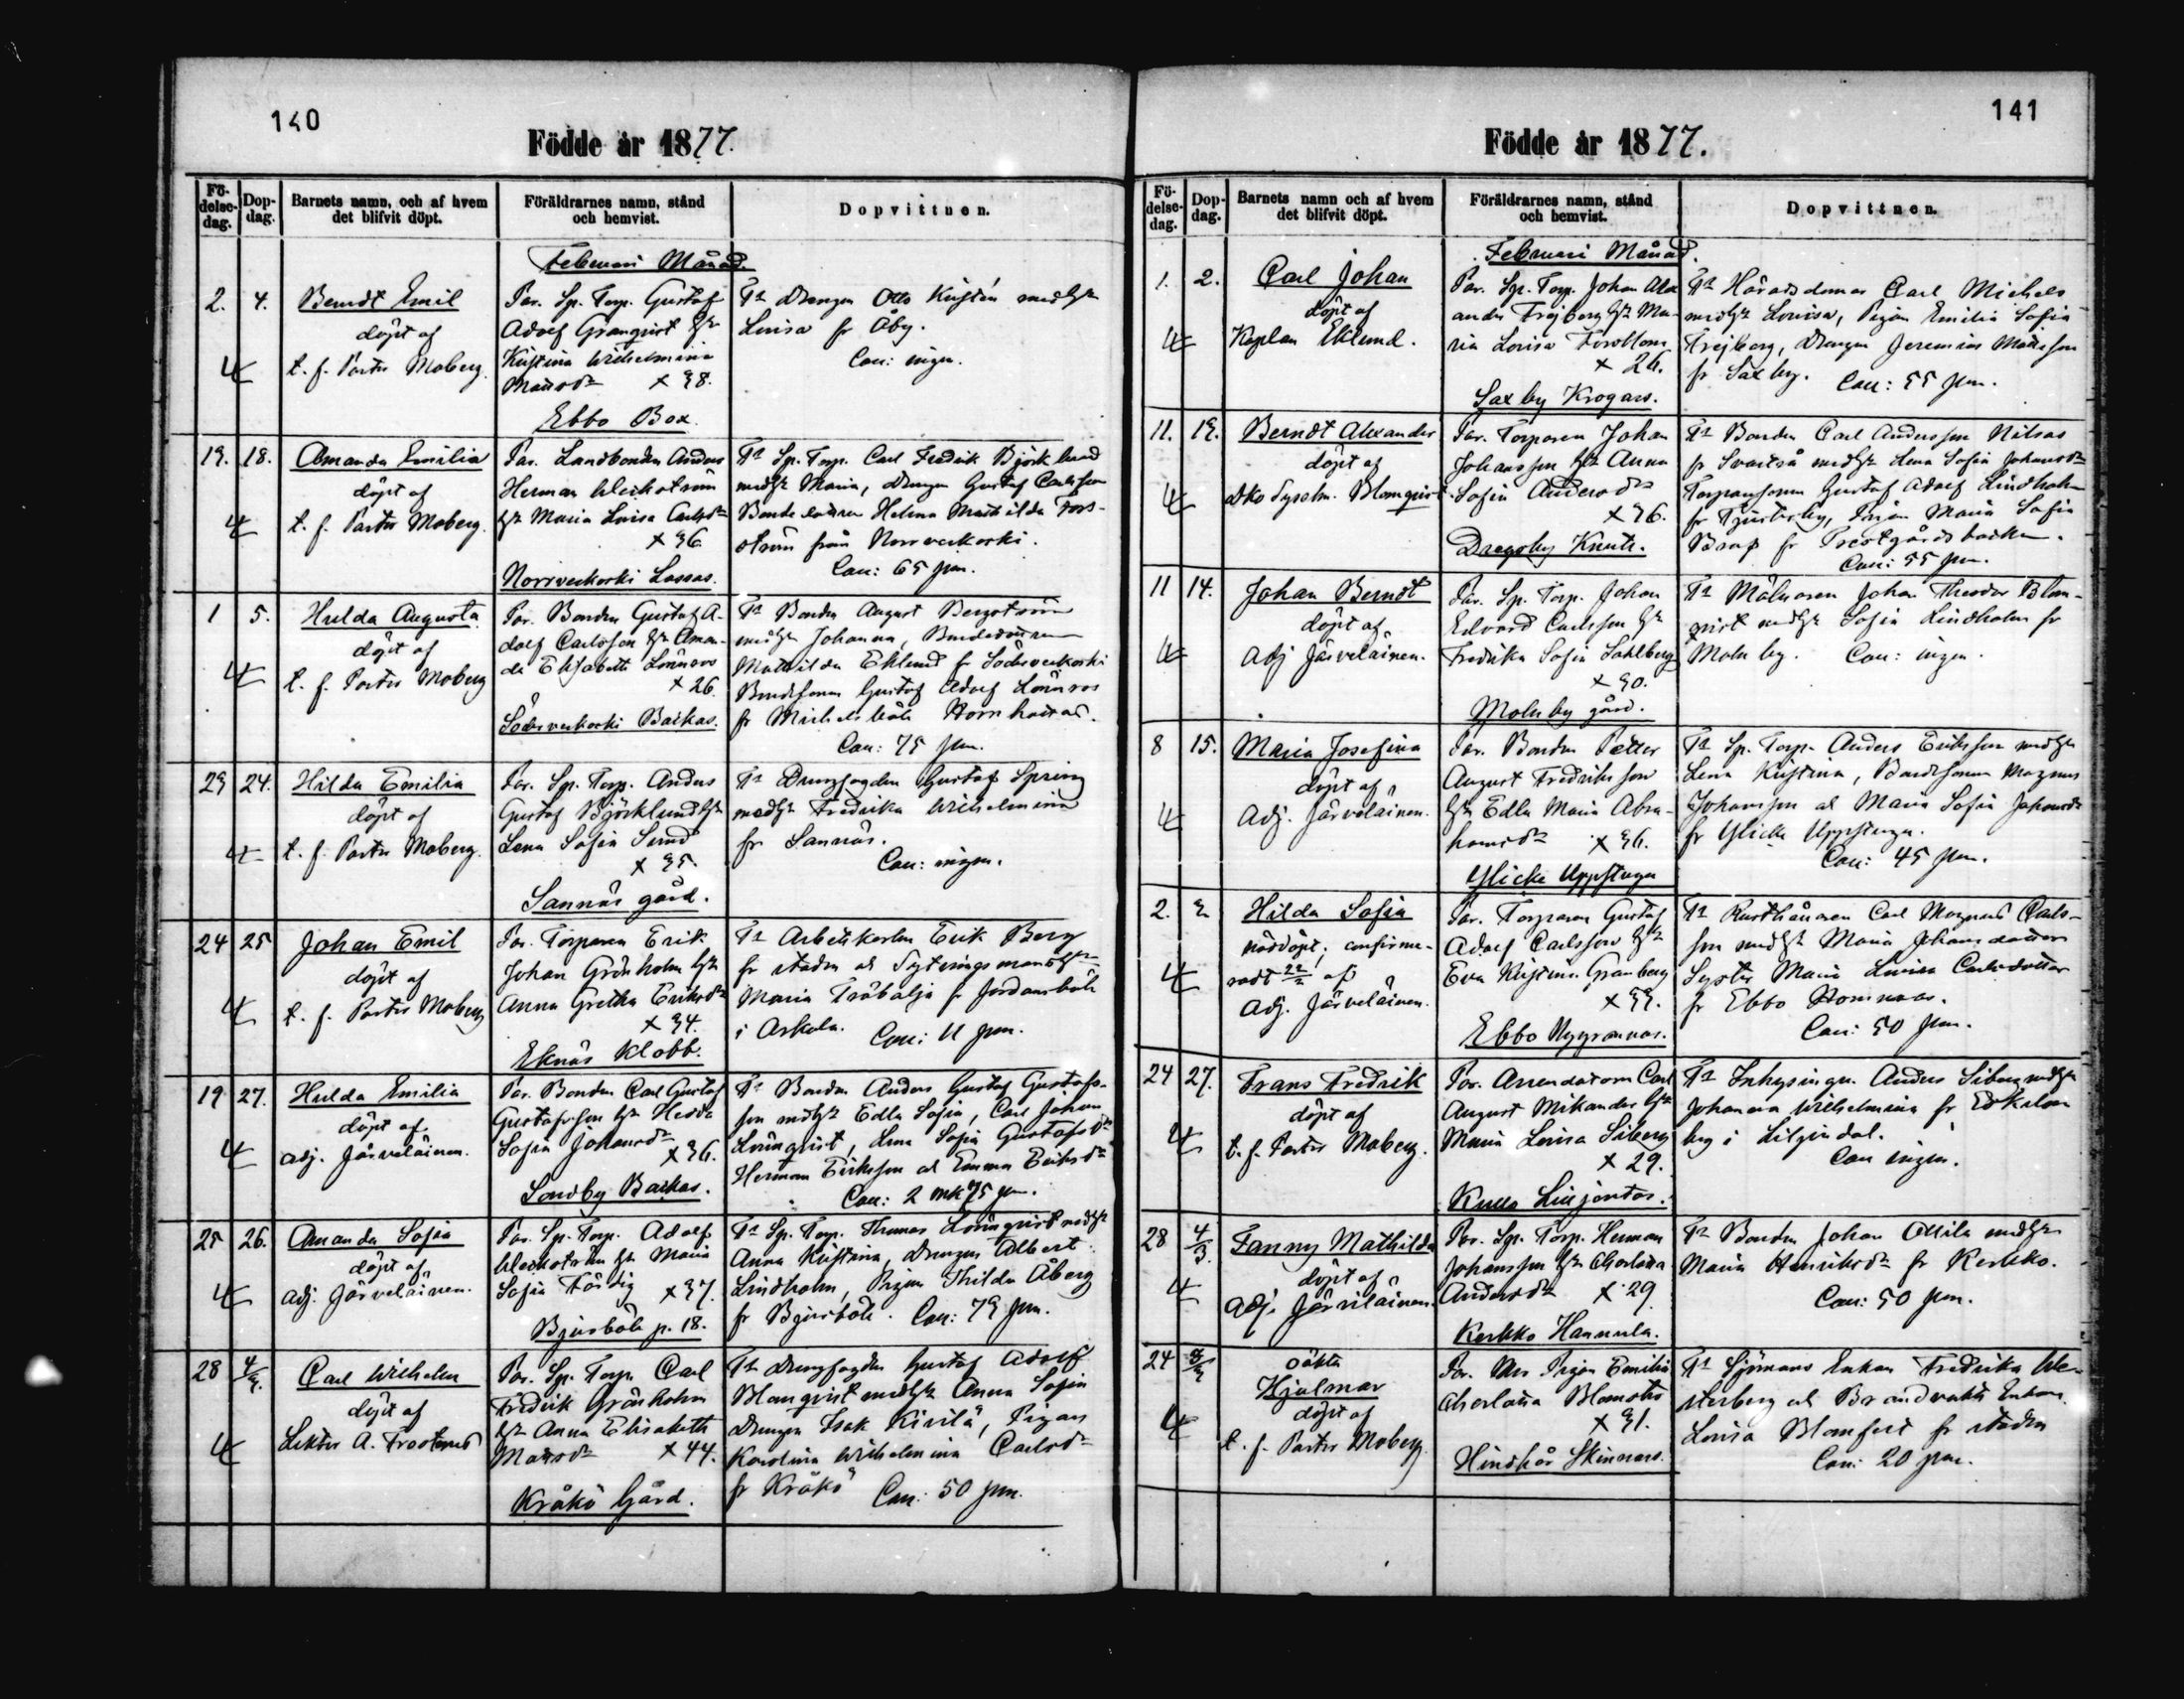 140
Födde år 1877.
Fö-
delse-
dag.
Dop-
dag.
Barnets namn, och af hvem
det blifvit döpt.
Föräldrarnes namn, stånd
och hemvist.
Dopvittnen.
Februari Månad.
2. 4. Berndt Emil
döpt af
t. f. Pastor Moberg.
Par. Sp. Torp. Gustaf
Adolf Granquist hst
Kristina Wilhelmina
Matsdr × 38.
Ebbo Box.
Tt Drengen Otto
Lovisa fr Åby.
Can: ingen.
19. 18. Amanda Emilia
döpt af
t. f. Pastor Moberg.
Par. Landbonden Anders
Herman Weckström
hst Maria Lovisa Carlsdr
× 36.
Norrveckoski Lassas.
Tt Sp. Torp. Carl Fredrik Björklund
medhst Maria, Drengen Gustaf Carlsson
Bondedottren Helena Mathilda Fors-
ström från Norrveckoski.
Can: 65 pen.
1 5. Hulda Augusta
döpt af
t. f. Pastor Moberg
Par. Bonden Gustaf A-
dolf Carlsson hst Aman-
da Elisabeth Lönnros
× 26.
Söderveckoski Backas.
Tt Bonden August Bergström
medhst Johanna, Bondedottren
Mathilda Eklund fr Söderveckoski
Bondesonen Gustaf Adolf Lönnros
fr Michelsböle
Can: 75 pen.
23 24. Hilda Emilia
döpt af
t. f. Pastor Moberg.
Par. Sp. Torp. Anders
Gustaf Björklund hst
Lena Sofia Sund
× 35.
Sannäs gård.
Tt Drengfogden Gustaf Spring
medhst Fredrika Wilhelmina
fr Sannäs.
Can: ingen.
24 25 Johan Emil
döpt af
t. f. Pastor Moberg
Par. Torparen Erik
Johan Grönholm hst
Anna Gretha Eriksdr
× 34.
Eknäs Klobb.
Tt Arbetskarlen Erik Berg
fr staden och
Maria Träbalja fr Jordansböle
i Askola. Can: 11 pen.
19 27. Hulda Emilia
döpt af
adj. Järveläinen.
Par. Bonden Carl Gustaf
Gustafsson hst Hedda
Sofia Johansdr
× 36.
Sondby Backas.
Tt Bonden Anders Gustaf Gustafs-
son medhst Edla Sofia, Carl Johan
Lönnqvist, Lena Sofia Gustafsdr
Herman Eriksson och Emma Eriksdr
Can: 2 mk 75 pen.
25 26. Amanda Sofia
döpt af
adj. Järveläinen.
Par. Sp. Torp. Adolf
Weckström hst Maria
Sofia Färdig × 37.
Bjursböle p. 18.
Tt Sp. Torp. Thomas Lönnqvist medhst
Anna Kristina, Drengen Albert
Lindholm, Pigan Thilda Åberg
fr Bjursböle. Can: 79 pen.
28 4/3. Carl Wilhelm
döpt af
Lektor A. Frosterus
Par. Sp. Torp. Carl
Fredrik Grönholm
hst Anna Elisabeth
Matsdr × 44.
Kråkö Gård.
Tt Drengfogden Gustaf Adolf
Blomqvist medhst Anna Sofia
Drengen Isak Kivilä, Pigan
Karolina Wilhelmina Carlsdr
fr Kråkö Can: 50 pen.
141
Födde år 1877.
Fö-
delse-
dag.
Dop-
dag.
Barnets namn och af hvem
det blifvit döpt.
Föräldrarnes namn, stånd
och hemvist.
Dopvittnen.
Februari Månad.
1. 2. Carl Johan
döpt af
Kaplan Eklund.
Par. Sp. Torp. Johan Alex
ander Frejborg hst Ma-
ria Lovisa Forsblom
× 26.
Saxby Krogars.
Tt Häradsdomar Carl Michels
medhst Lovisa, Pigan Emilia Sofia
Frejborg, Drengen Jeremias Mattsson
fr Saxby. Can: 55 pen.
11. 13. Berndt Alexander
döpt af
Blomqvist.
Par. Torparen Johan
Johansson hst Anna
Sofia Andersdr
× 36.
Dregsby Knuts.
Tt Bonden Carl Andersson Nilsas
fr Svartså medhst Lena Sofia Johansdr
Torparesonen Gustaf Adolf Lindholm
fr Tjusterby, Pigan Maria Sofia
fr Prestgårds backen.
Can: 55 pen.
11 14. Johan Berndt
döpt af
Adj Järveläinen.
Par. Sp. Torp. Johan
Edvard Carlsson hst
Fredrika Sofia Sahlberg
× 30.
Molnby gård.
Tt Mölnaren Johan Theodor Blom-
qvist medhst Sofia Lindholm fr
Molnby. Can: ingen.
8 15. Maria Josefina
döpt af
Adj. Järveläinen.
Par. Bonden Petter
August Fredriksson
hst Edla Maria Abra-
hamsdr × 36.
Ylicke Uppstuga
Tt Sp. Torp. Anders Eriksson medhst
Lena Kristina, Bondesonen Magnus
Johansson och Maria Sofia Johansdr
fr Ylicke Uppstuga.
Can: 45 pen.
2. 3 Hilda Sofia
nöddöpt, confirme-
radt 22/2 af
Adj. Järveläinen.
Par. Torparen Gustaf
Adolf Carlsson hst
Eva Kristina Granberg
× 33.
Ebbo Nygrannas.
Tt Rusthållaren Carl Magnus Carls-
son medhst Maria Johansdotter
Syster Maria Lovisa Carlsdotter
fr Ebbo
Can: 50 pen.
24 27. Frans Fredrik
döpt af
t. f. Pastor Moberg.
Par. Arrendatorn Carl
August Mikander hst
Maria Lovisa Siberg
× 29.
Kullo Liljontas.
Tt Inhysingen Anders Siberg medhst
Johanna Wilhelmina fr
by i Liljendal.
Can ingen.
28 4/3. Fanny Mathilda
döpt af
Adj. Järveläinen.
Par. Sp. Torp. Herman
Johansson hst Charlotta
Andersdr × 29
Kerkko Hannula.
Tt Bonden Johan Ollila medhst
Maria Henriksdr fr Kerkko.
Can: 50 pen.
24 8/3 oäkta
Hjalmar
döpt af
t. f. Pastor Moberg.
Par. Mor Pigan Emilia
Charlotta Blomster
× 31.
Hindhår Skinnars.
Tt Sjömans Enkan Fredrika We-
sterberg och Brandvakts Enkan
Lovisa fr staden
Can: 20 pen.